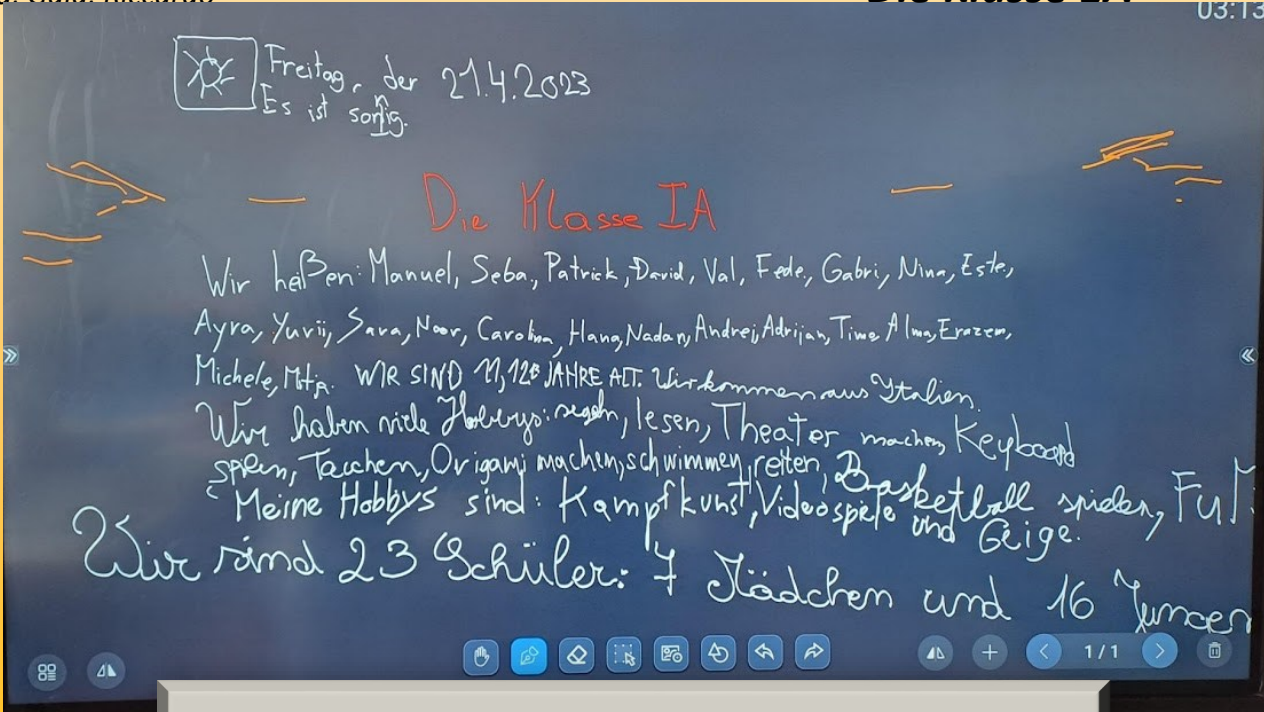 03:13
Freitag, der 21.4.2023
Es ist sonnig.
Die Klasse IA
Wir heißen: Manuel, Seba, Patrick, David, Val, Fede, Gabri, Nina, Este,
Ayra, Yurii, Sara, Noor, Carolina, Hana, Nadan, Andrej, Adrijan, Timo, Alma, Erazem,
Michele, Mitja. WIR SIND 11, 12 JAHRE ALT. Wir kommen aus Italien.
Wir haben viele Hobbys: segeln, lesen, Theater machen, Keyboard
spielen, Tauchen, Origami machen, schwimmen, reiten, Basketball spielen,
Meine Hobbys sind: Kampfkunst, Videospiele und Geige.
Wir sind 23 Schüler: 7 Mädchen und 16 Jungen
1/1